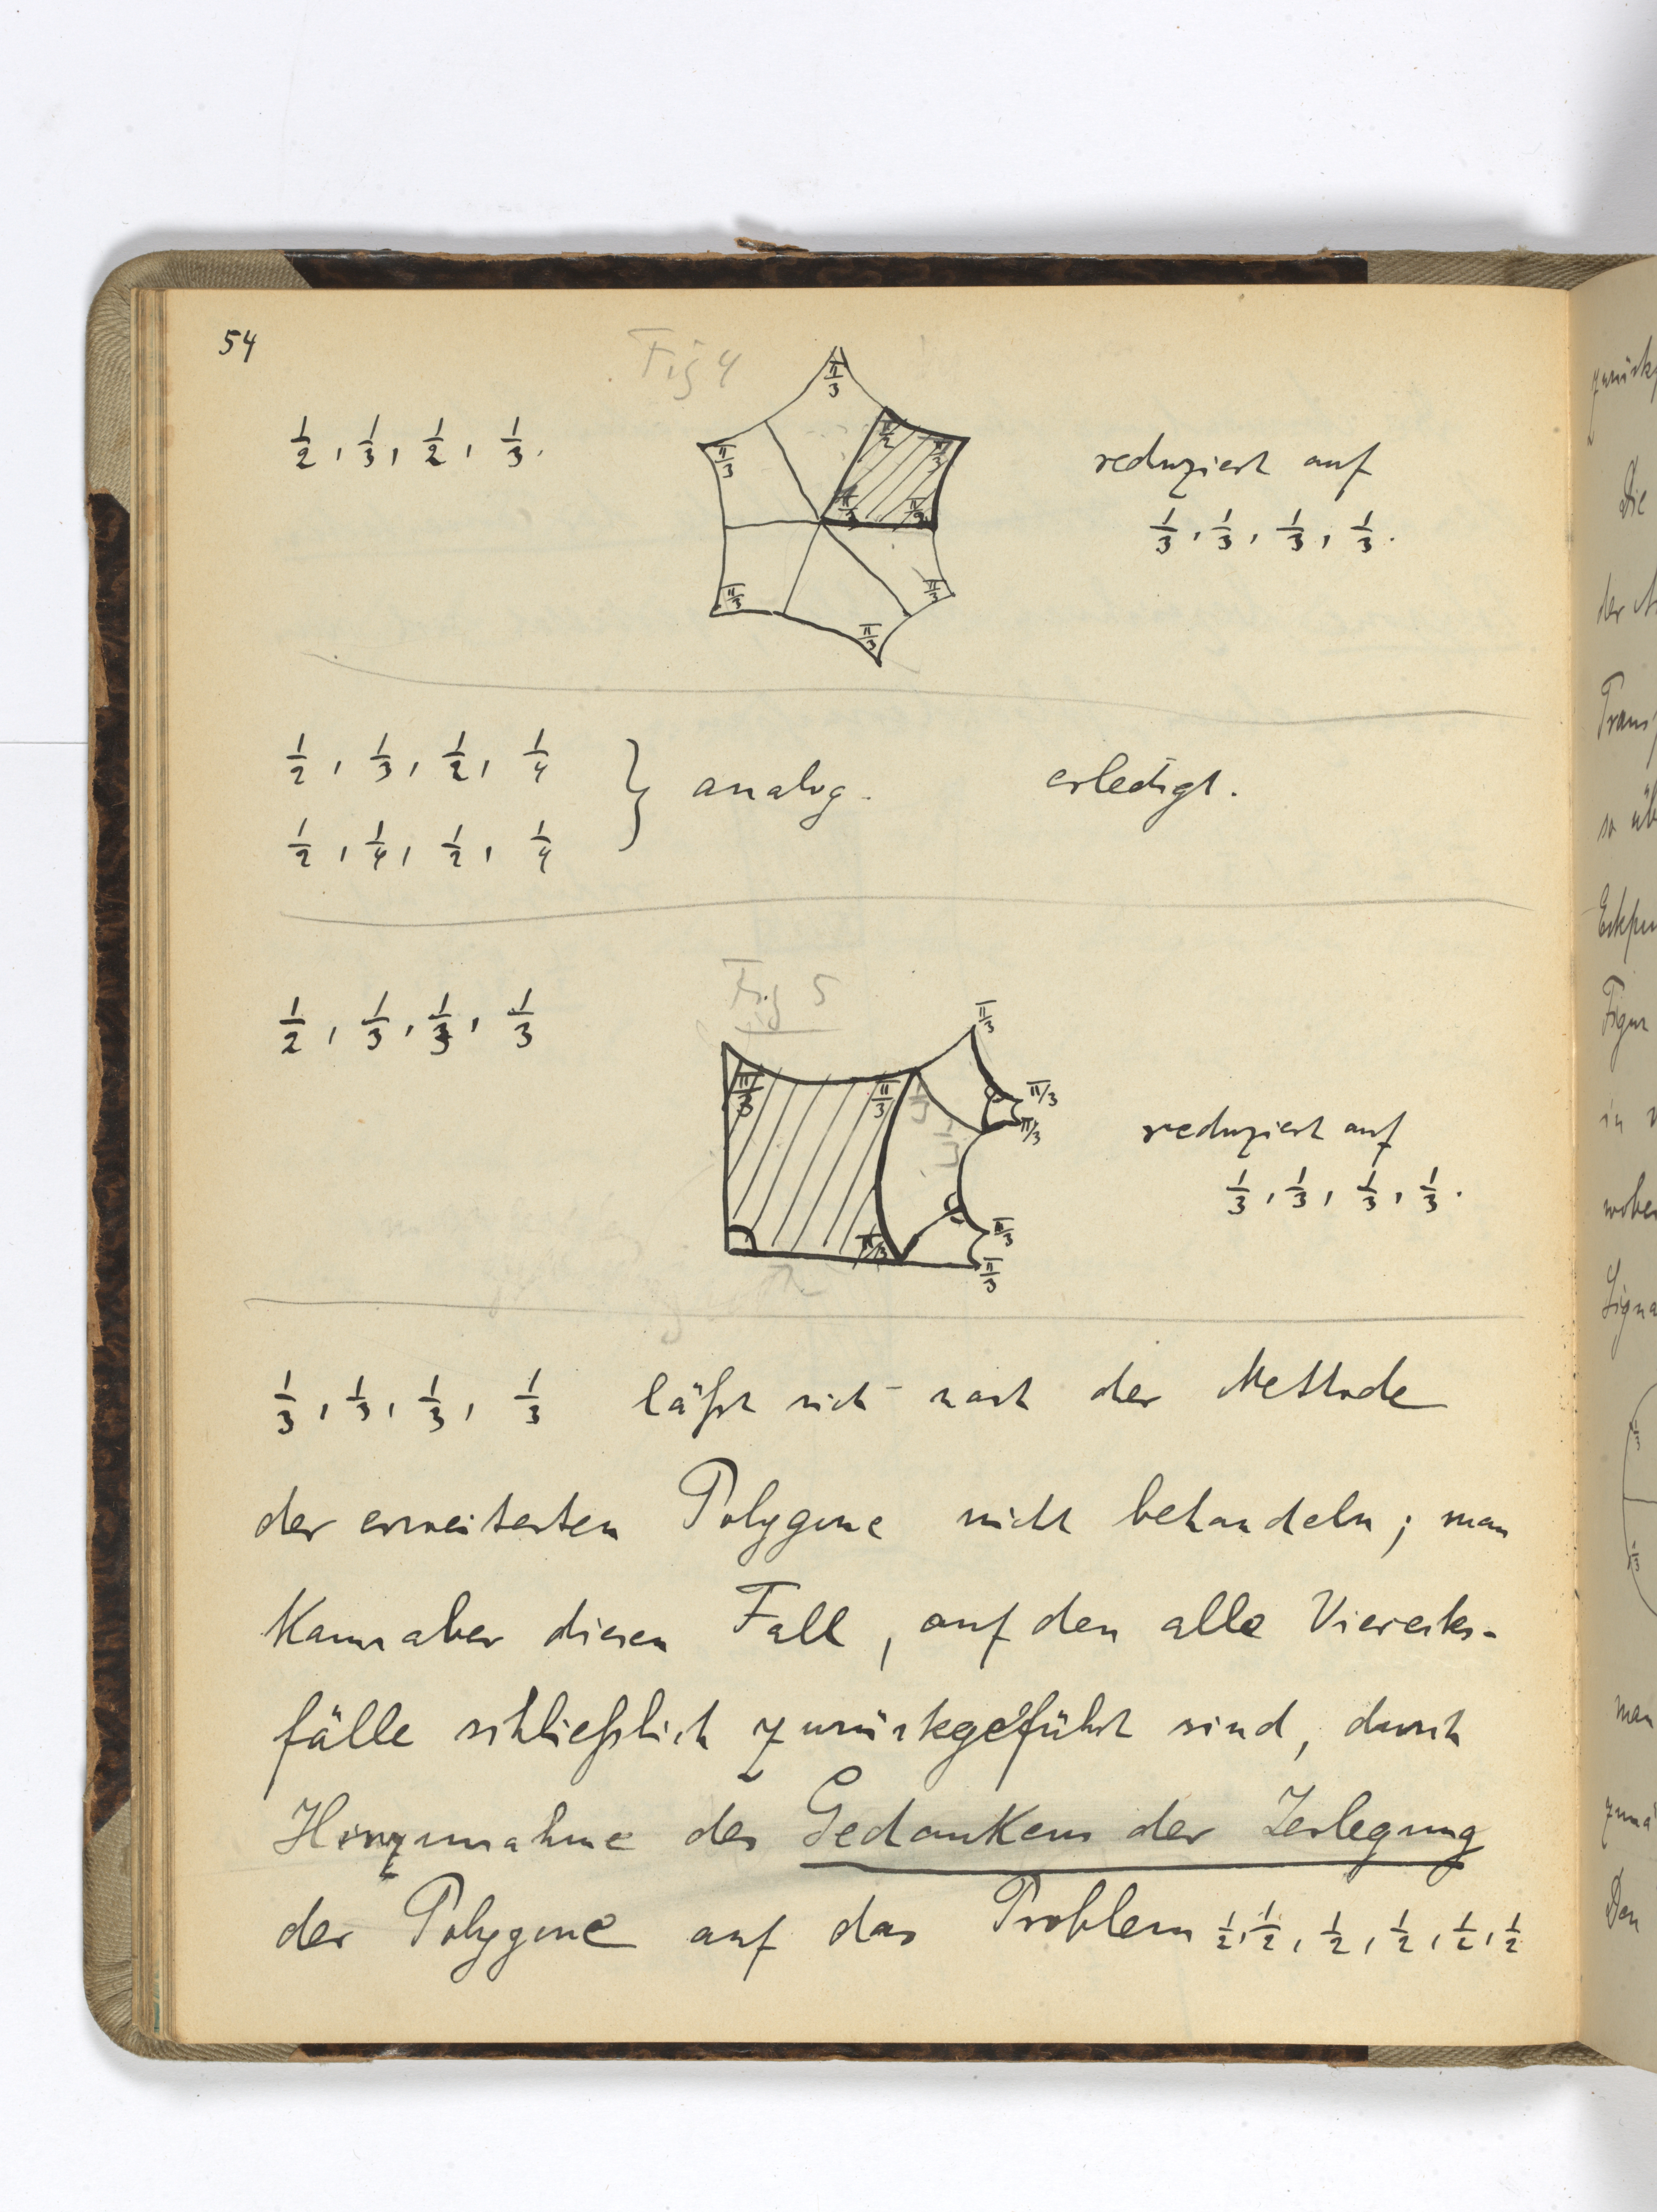 54
Fig 4
π/3
1/2, 1/3, 1/2, 1/3.
π/2
π/3
π/3
reduziert auf
π/3
π/2
1/3, 1/3, 1/3, 1/3.
π/3
π/3
π/3
1/2, 1/3, 1/2, 1/4
} analog. erledigt.
1/2, 1/4, 1/2, 1/4
Fig 5
1/2, 1/3, 1/3, 1/3
π/3
π/3
π/3
π/3
π/3
reduziert auf
1/3, 1/3, 1/3, 1/3.
π/3
π/3
π/3
1/3, 1/3, 1/3, 1/3 läßt sich nach der Methode
der erweiterten Polygone nicht behandeln; man
kann aber diesen Fall, auf den alle Vierecks-
fälle schließlich zurückgeführt sind, durch
Hinzunahme des Gedankens der Zerlegung
der Polygone auf das Problem 1/2, 1/2, 1/2, 1/2, 1/2, 1/2
Die
der
so
Figur
in
wobei
man
Den